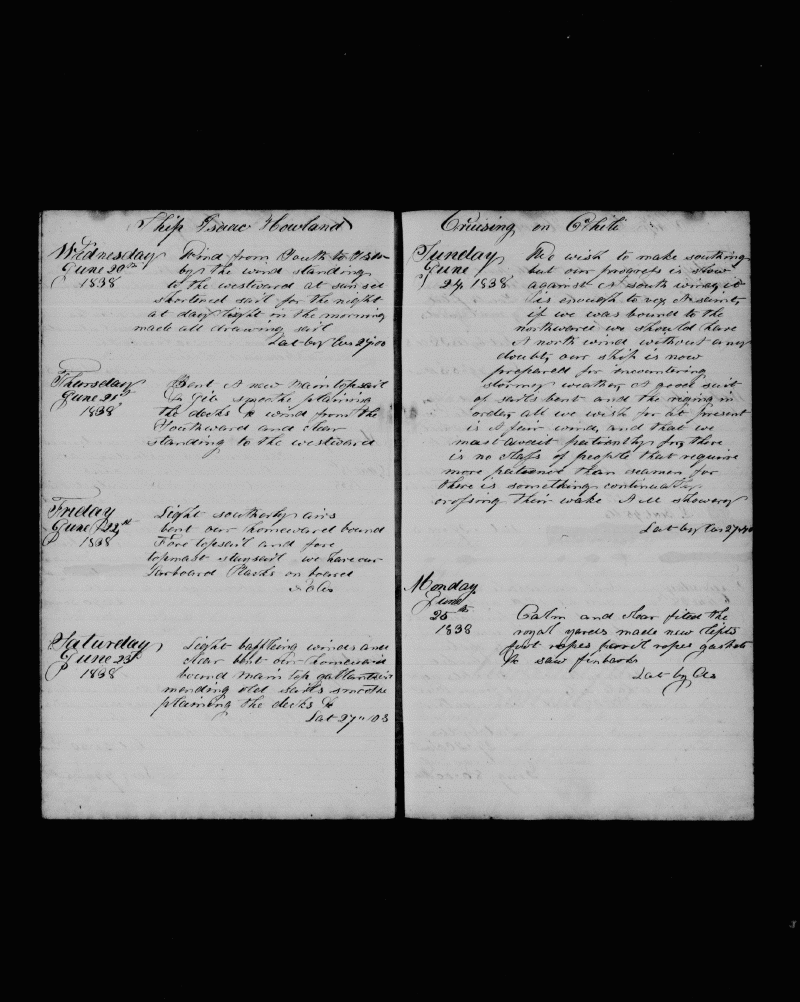 Ship Isaac Howland
Wednesday
June 20th
1838
Wind from South to
by the wind standing
to the westward at sunset
shortened sail for the night
at day light in the morning
made all drawing sail
Lat by Obs 27"00
Thursday
June 21st
1838
Bent A new Main topsail
& Gib smoothe plaining
the decks & wind from the
Southward and clear
standing to the westward
Friday
June 22nd
1838
Light southerly airs
bent our homeward bound
Fore topsail and fore
topmast stunsail we have our
Larboard Tacks on board
Saturday
June 23d
1838
Light baffling winds and
clear bent our homeward
bound main top gallantsail
mending old sails smoothe
plaining the decks &
Lat 27"03
Cruising on Chile
Sunday
June
24, 1838
We wish to make southing
but our progress is slow
against A south wind, it
is enough to vex A saint,
if we was bound to the
northward we should have
A north wind without any
doubt, our ship is now
prepared for encountering
stormy weather, A good suit
of sails bent and the riging in
order, all we wish for at present
is A fair wind, and that we
must await patiently for, there
is no class of people that require
more patience than seamen for
there is something continually
crossing their wake A M showery
Lat by Obs
Monday
June
25th
1838
Calm and clear fited the
royal yards made new lifts
foot ropes parrel ropes gaskets
& saw finbacks
Lat by Obs